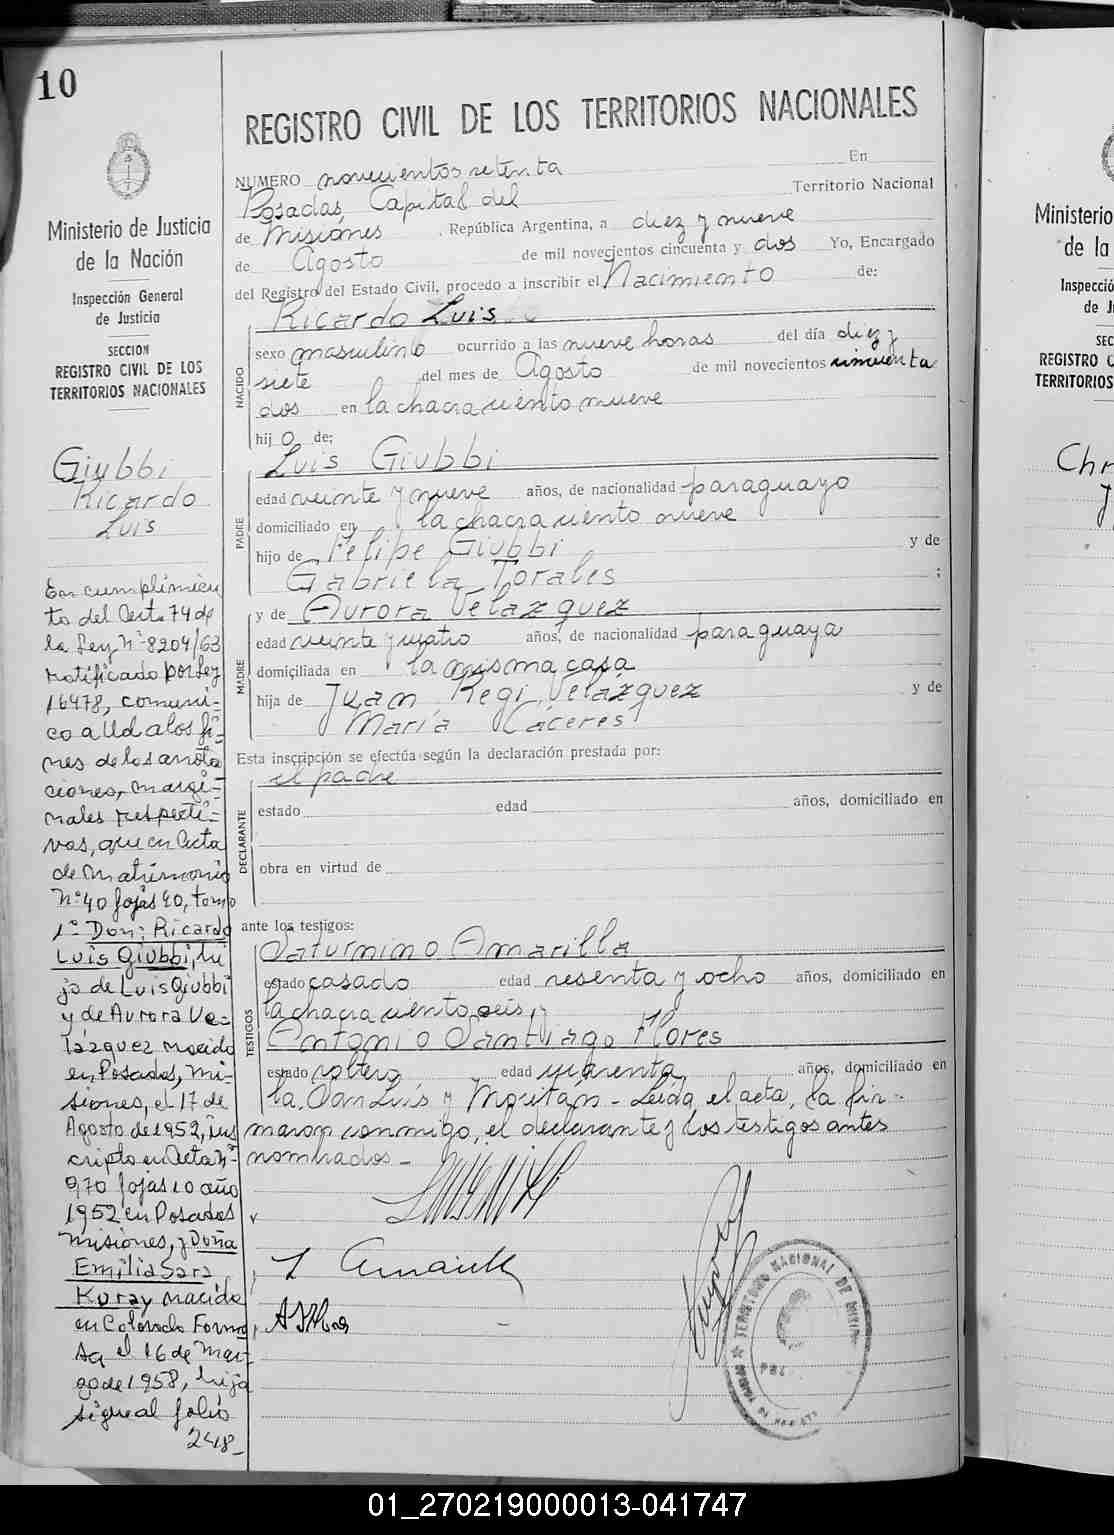 10
Ministerio de Justicia
de la Nación
Inspección General
de Justicia
SECCION
REGISTRO CIVIL DE LOS
TERRITORIOS NACIONALES
Giubbi
Ricardo
Luis
En cumplimien
to del Art. 74 de
la Ley Nº 8204/63
ratificado por Ley
16478, comuni-
co a Ud a los fi-
nes de las anota
ciones, margi-
nales respecti-
vas, que en Acta
de matrimonio
Nº 40 fojas 40, tomo
1º Don: Ricardo
Luis Giubbi, hi
jo de Luis Giubbi
y de Aurora Ve-
lázquez nacido
en Posadas, Mi-
siones, el 17 de
Agosto de 1952, ins
cripto en Acta Nº
970 fojas 10 año
1952 en Posadas
Misiones, y Doña
Emilia Sara
Kuray nacida
en Colorado Formo
sa el 16 de Mar-
zo de 1958, hija
sigue al folio
248-
REGISTRO CIVIL DE LOS TERRITORIOS NACIONALES
NUMERO novecientos setenta En
Posadas, Capital del Territorio Nacional
de Misiones, República Argentina, a diez y nueve
de Agosto de mil novecientos cincuenta y dos Yo, Encargado
del Registro del Estado Civil, procedo a inscribir el Nacimiento de:
Ricardo Luis
NACIDO
sexo masculino ocurrido a las nueve horas del día diez y
siete del mes de Agosto de mil novecientos cincuenta
dos en la chacra ciento nueve
hijo de:
Luis Giubbi
PADRE
edad veinte y nueve años, de nacionalidad paraguayo
domiciliado en la chacra ciento nueve
hijo de Felipe Giubbi y de
Gabriela Torales ;
y de Aurora Velazquez
MADRE
edad veinte y cuatro años, de nacionalidad paraguaya
domiciliada en la misma casa
hija de Juan Regi Velázquez y de
María Cáceres
Esta inscripción se efectúa según la declaración prestada por:
el padre
DECLARANTE
estado edad años, domiciliado en
obra en virtud de
ante los testigos:
Saturnino Amarilla
TESTIGOS
estado casado edad sesenta y ocho años, domiciliado en
la chacra ciento seis, y
Antonio Santiago Flores
estado soltero edad cuarenta años, domiciliado en
la San Luis y Moritán - Leida el acta, la fir-
maron conmigo, el declarante y los testigos antes
nombrados -
TERRITORIO NACIONAL DE MISIONES
Ministerio
de la
Inspecció
de J
SEC
REGISTRO C
TERRITORIOS
Chr
01_270219000013-041747